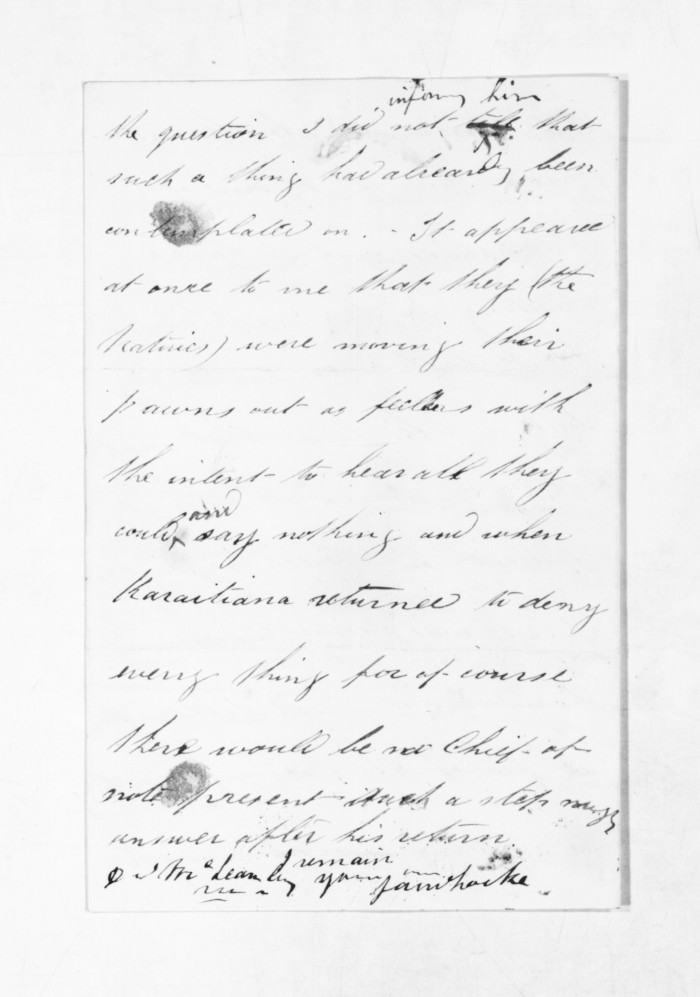 inform him
the question I did not tell that
such a thing had already been
contemplated on. - It appeared
at once to me that they (the
Natives) were moving their
pawns out as feelers with
the intent to hear all they
could, and say nothing and when
Karaitiana returned to deny
every thing for of course
there would be no Chief of
note present such a step may
answer after his return.
I remain
McLean Esq